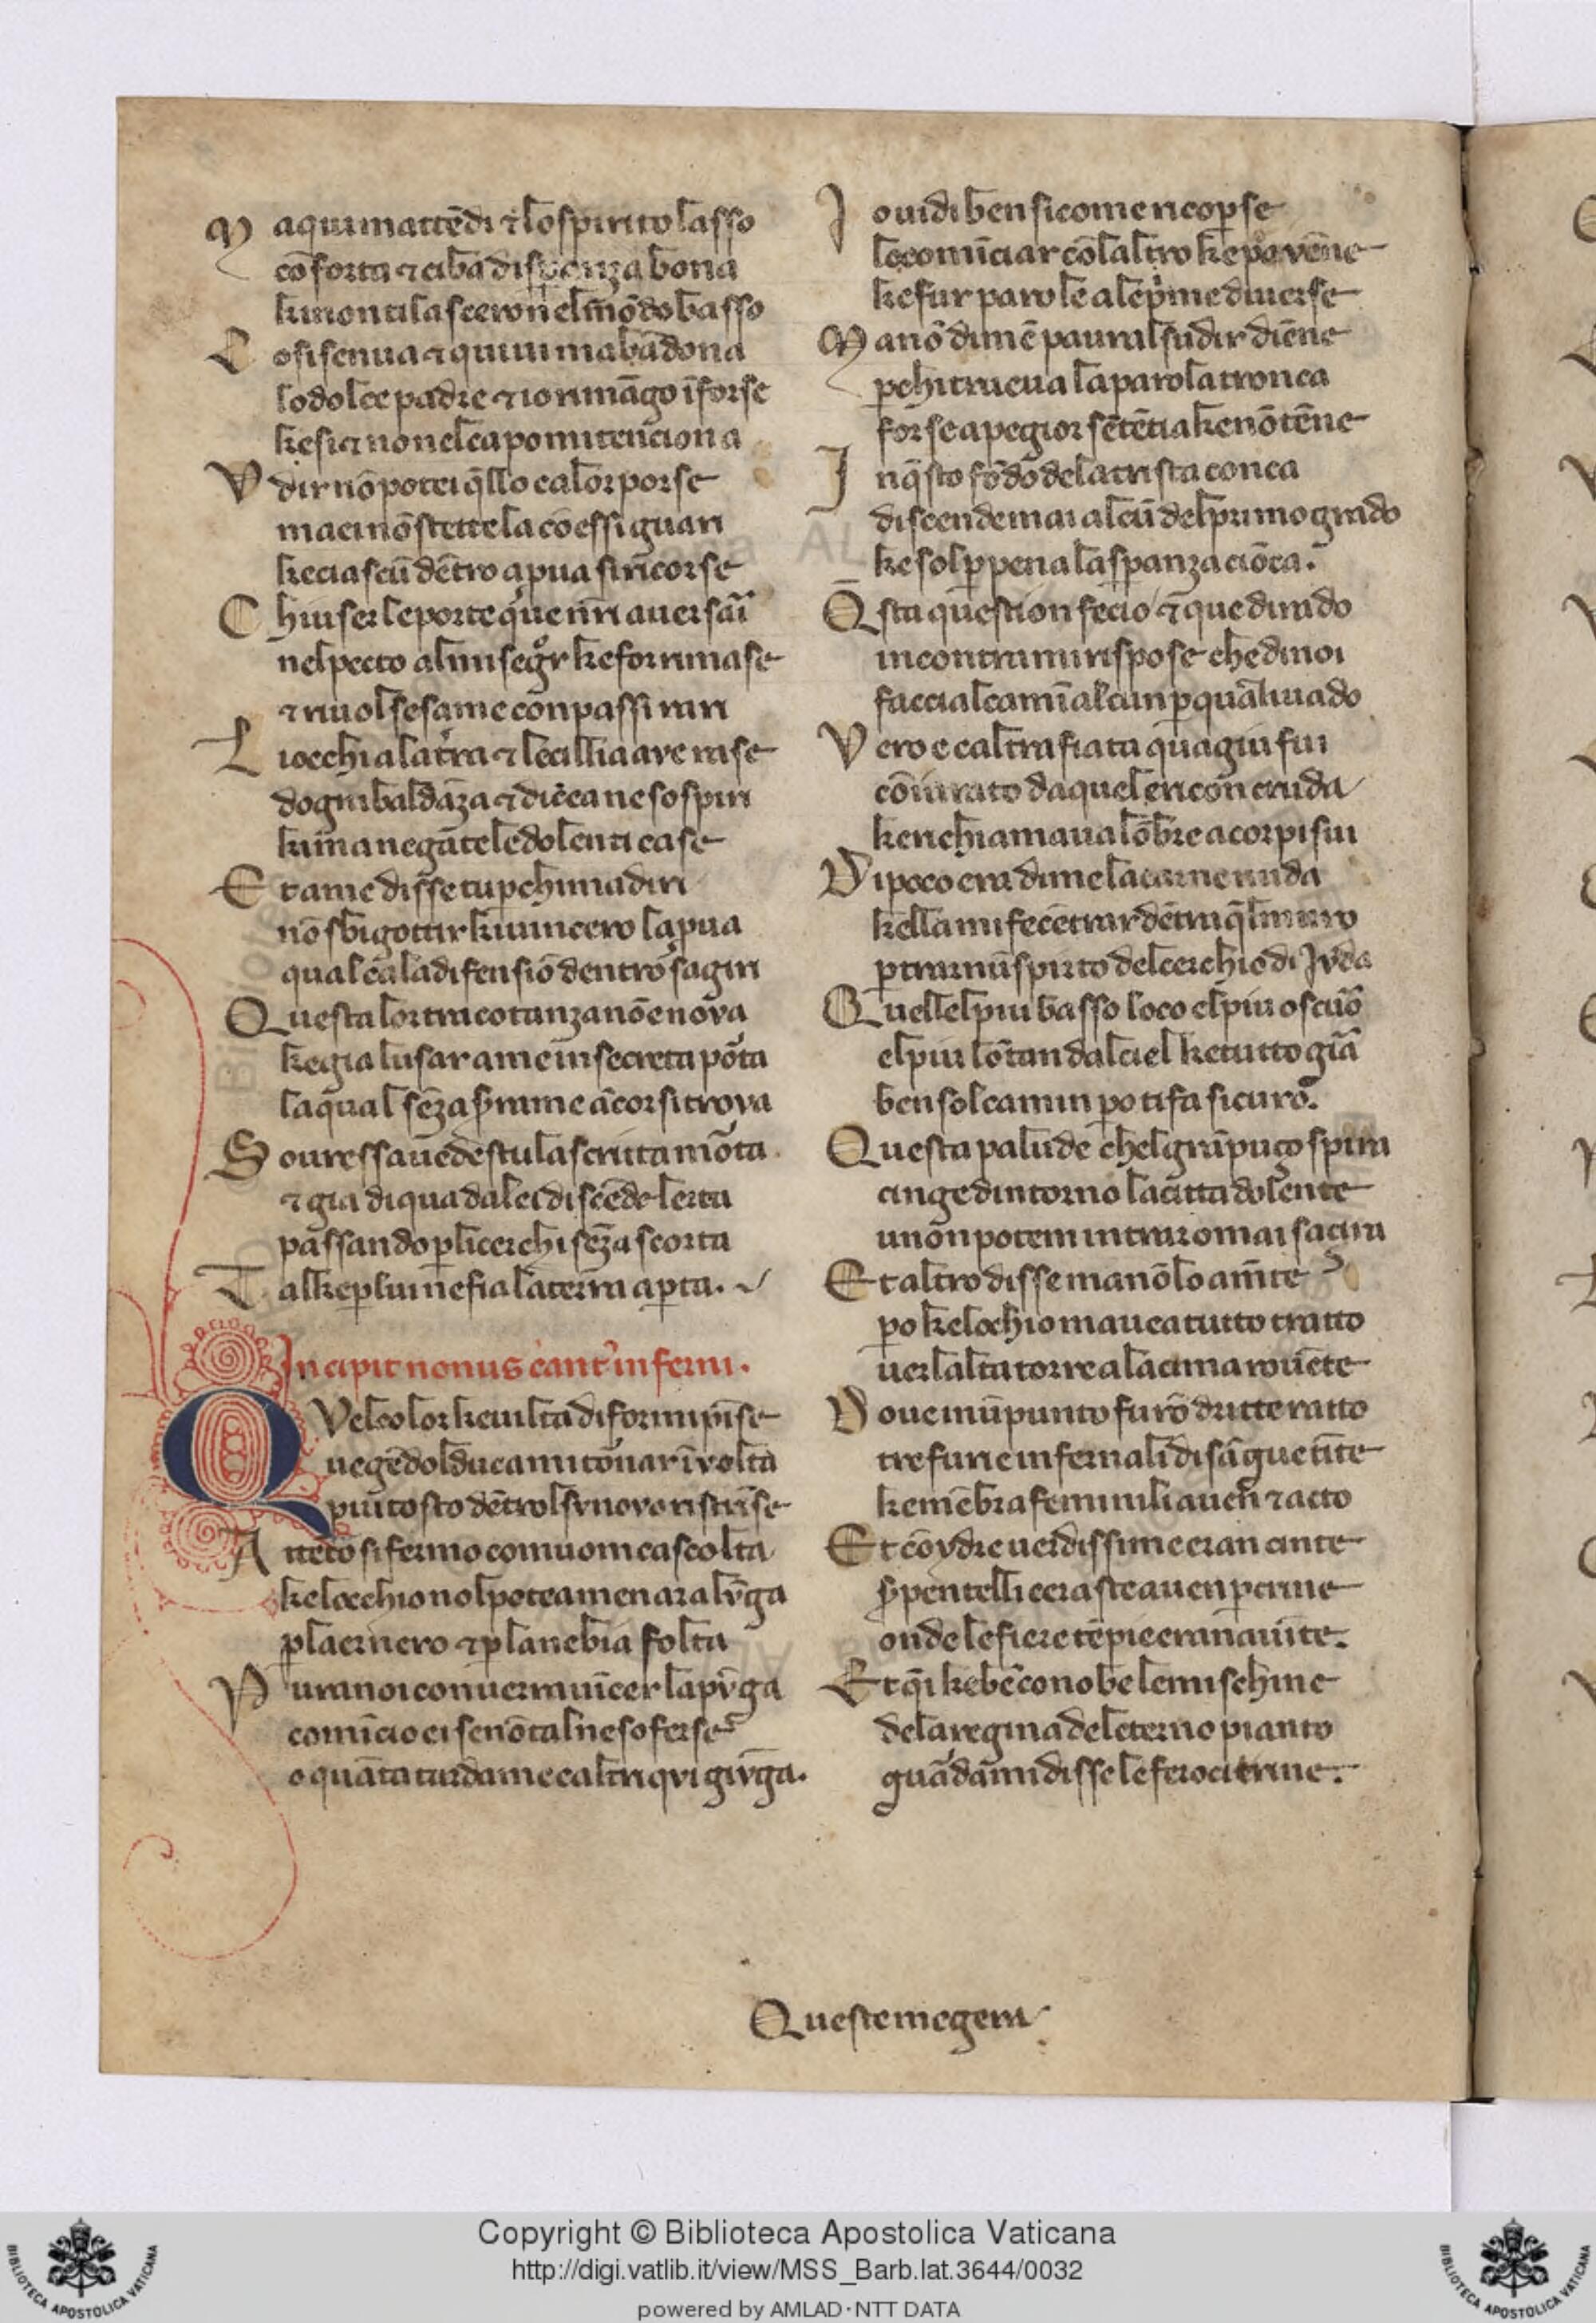 M aqui mattēdi ⁊ lo spirito lasso
cōforta ⁊ ciba di speranza bona
ki non ti lascero nel mōdo basso
C osi senua ⁊ quiui mabādona
lo dolce padre ⁊ io rimāgo ī forse
ke si ⁊ no nel capo mi tenciona
V dir nō potei q̄llo ca lor porse
ma ei nō stette la cō essi guari
ke ciascū dētro a pua si ricorse
C hiuser le porte que nr̄i auersari
nel pecto al mi segor ke for rimase
⁊ riuolsesame con passi rari
L i occhi a la terra ⁊ le cillia ave rase
dogni baldāza ⁊ dicea ne sospiri
ki ma negāte le dolenti case
E t a me disse tu pchi madiri
nō sbigottir ki uincero la pua
qual cala difensiō dentro sagiri
Q uesta lor tracotanza nō e nova
ke gia lusar a me in secreta pōta
la qual sēza srame ācor si trova
S ouressa uedestu la scritta mōta
⁊ gia di qua da lei discēde lerta
passando p li cerchi sēza scorta
T al ke p lui ne fia la terra apta.
Incipit nonus cant' inferni.
Q Vel color ke uilta di for mi pīse
uegēdol duca mi tōnar ī volta
piu tosto dētrol sv novo ristrīse
A ttēto si fermo comuom cascolta
ke locchio nol potea menar a lv̄ga
p laer nero ⁊ p la nebia folta
P ur a noi conuerra uīcer la pv̄ga
comīcio ei se nō tal ne soferse
o quāto tarda me caltri qvi giv̄ga.
I o uidi ben si come ricopse
lo comīciar cō laltro ke poi vēne
ke fur parole a le prime diuerse
M a nō dimē paura l su dir diēne
pchi traeua la parola tronca
forse a pegior sētētia ke nō tēne
I n q̄sto fōdo de la trista conca
discende mai alcū del primo grado
ke sol p pena la spanza ciōca.
Q̄ sta question fecio ⁊ que di rado
incontra mi rispose che di noi
faccial camī alcun p qual iuado
V ero e caltra fiata qua giu fui
cōiurato da quel ericon cruda
ke richiamaua lōbre a corpi sui
D i poco era di me la carne nuda
kella mi fecētrar dētra q̄l muro
p trarnū spirto del cerchio di Jvda
Q uell el piu basso loco el piu oscuro
el piu lōtan dal ciel ke tutto gira
ben sol camin po ti fa sicuro.
Q uesta palude chel gra puço spira
cinge dintorno la citta dolente
u non potem intrar omai sacira
E t altro disse ma nō lo a mēte
po ke lochio mauea tutto tratto
uer lalta torre a la cima rouēte
D oue in ū punto furō dritte ratto
tre furie infernali di sāgue tīte
ke mēbra feminili auen ⁊ atto
E t cō ydre uerdissime eran cinte
spentelli ⁊ ceraste auen p crine
onde le fiere tēpie eran auīte.
E t q̄i ke bē conobe le mischine
de la regina de leterno pianto
guāda mi disse le feroci trine.
Queste megera
Copyright © Biblioteca Apostolica Vaticana
http://digi.vatlib.it/view/MSS_Barb.lat.3644/0032
powered by AMLAD·NTT DATA
BIBLIOTECA APOSTOLICA VATICANA
BIBLIOTECA APOSTOLICA VATICANA